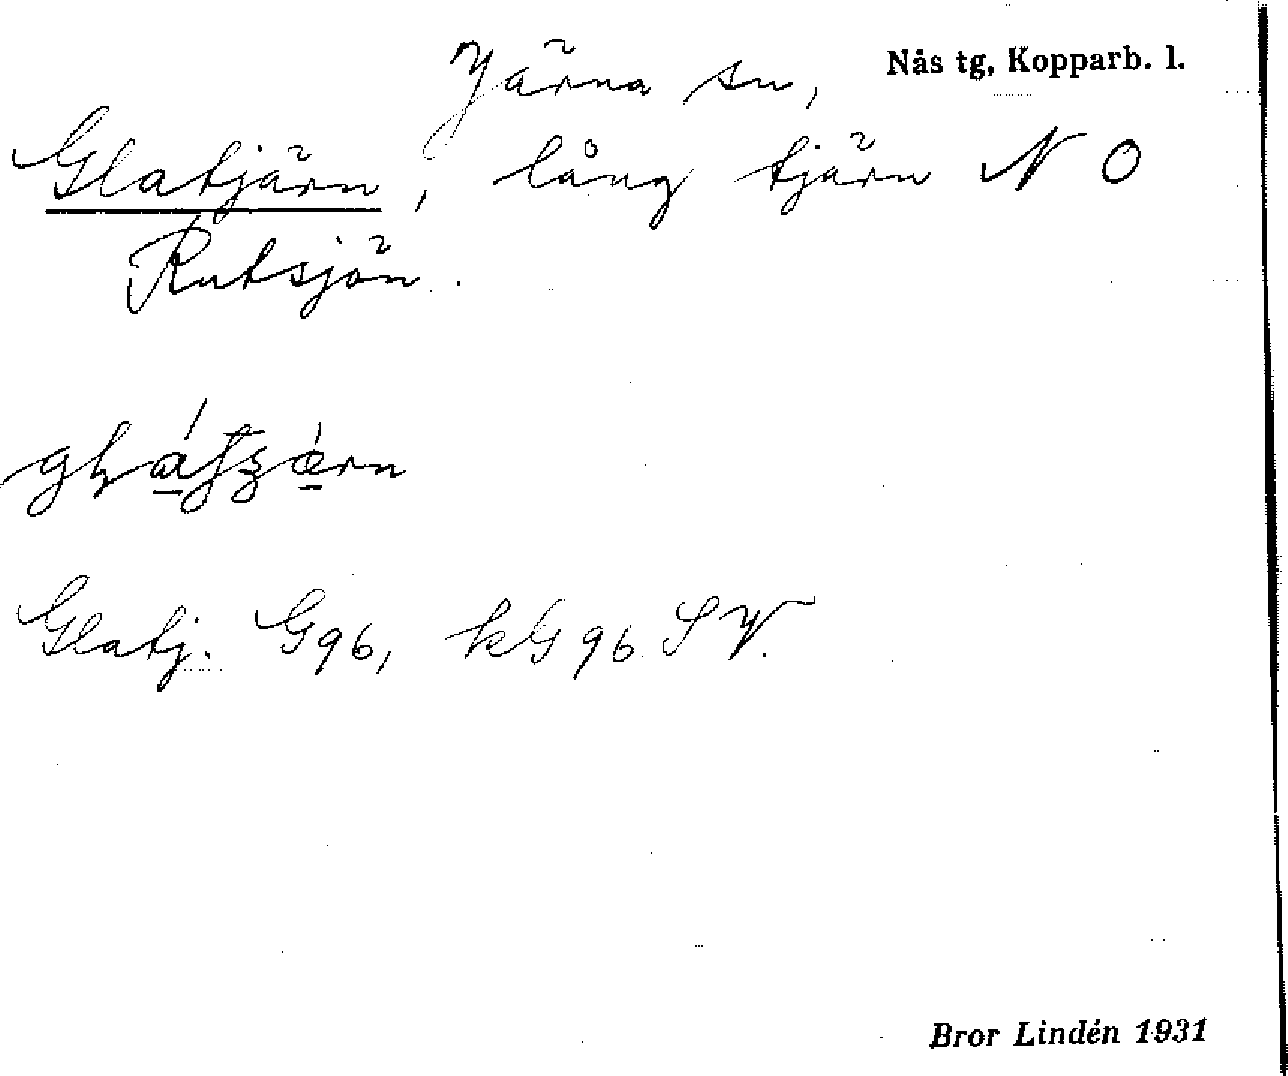 Järna sn, Nås tg, Kopparb. l.
Glatjärn, lång tjärn N O
Rutsjön.
Glatj. G96, kG96 SV.
Bror Lindén 1931